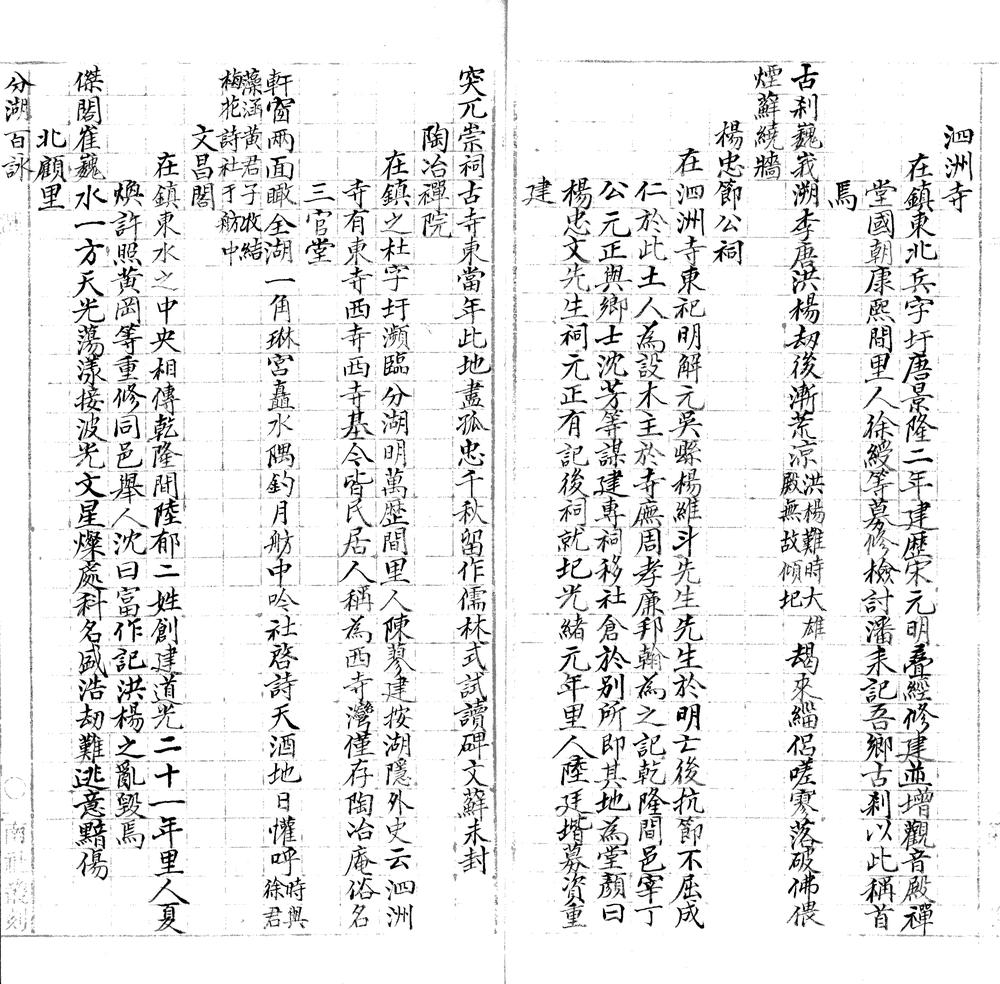 泗洲寺
在鎮東北兵字圩唐景隆二年建歷宋元明疊經修建並增觀音殿禪
堂國朝康熙間里人徐綬等募修檢討潘耒記吾鄉古刹以此稱首
焉
古刹巍峩溯李唐洪楊劫後漸荒涼洪楊難時大雄殿無故傾圮朅來緇侶嗟寥落破佛偎
煙蘚繞牆
楊忠節公祠
在泗洲寺東祀明解元吳縣楊維斗先生先生於明亡後抗節不屈成
仁於此土人為設木主於寺廡周孝廉邦翰為之記乾隆間邑宰丁
公元正與鄉士沈芳等謀建專祠移社倉於別所即其地為堂顏曰
楊忠文先生祠元正有記後祠就圮光緒元年里人陸廷堦募資重
建
突兀崇祠古寺東當年此地盡孤忠千秋留作儒林式試讀碑文蘚未封
陶冶禪院
在鎮之杜字圩瀕臨分湖明萬歷間里人陳蓼建按湖隱外史云泗洲
寺有東寺西寺西寺基今皆民居人稱為西寺灣僅存陶冶庵俗名
三官堂
軒窗兩面瞰全湖一角琳宮矗水隅釣月舫中吟社啓詩天酒地日懽呼時與徐君
藻涵黃君子牧結梅花詩社于舫中
文昌閣
在鎮東水之中央相傳乾隆間陸郁二姓創建道光二十一年里人夏
煥許照黃岡等重修同邑舉人沈曰富作記洪楊之亂毀焉
傑閣崔巍水一方天光蕩漾接波光文星燦處科名盛浩劫難逃意黯傷
北顧里
分湖百詠
南社叢刻